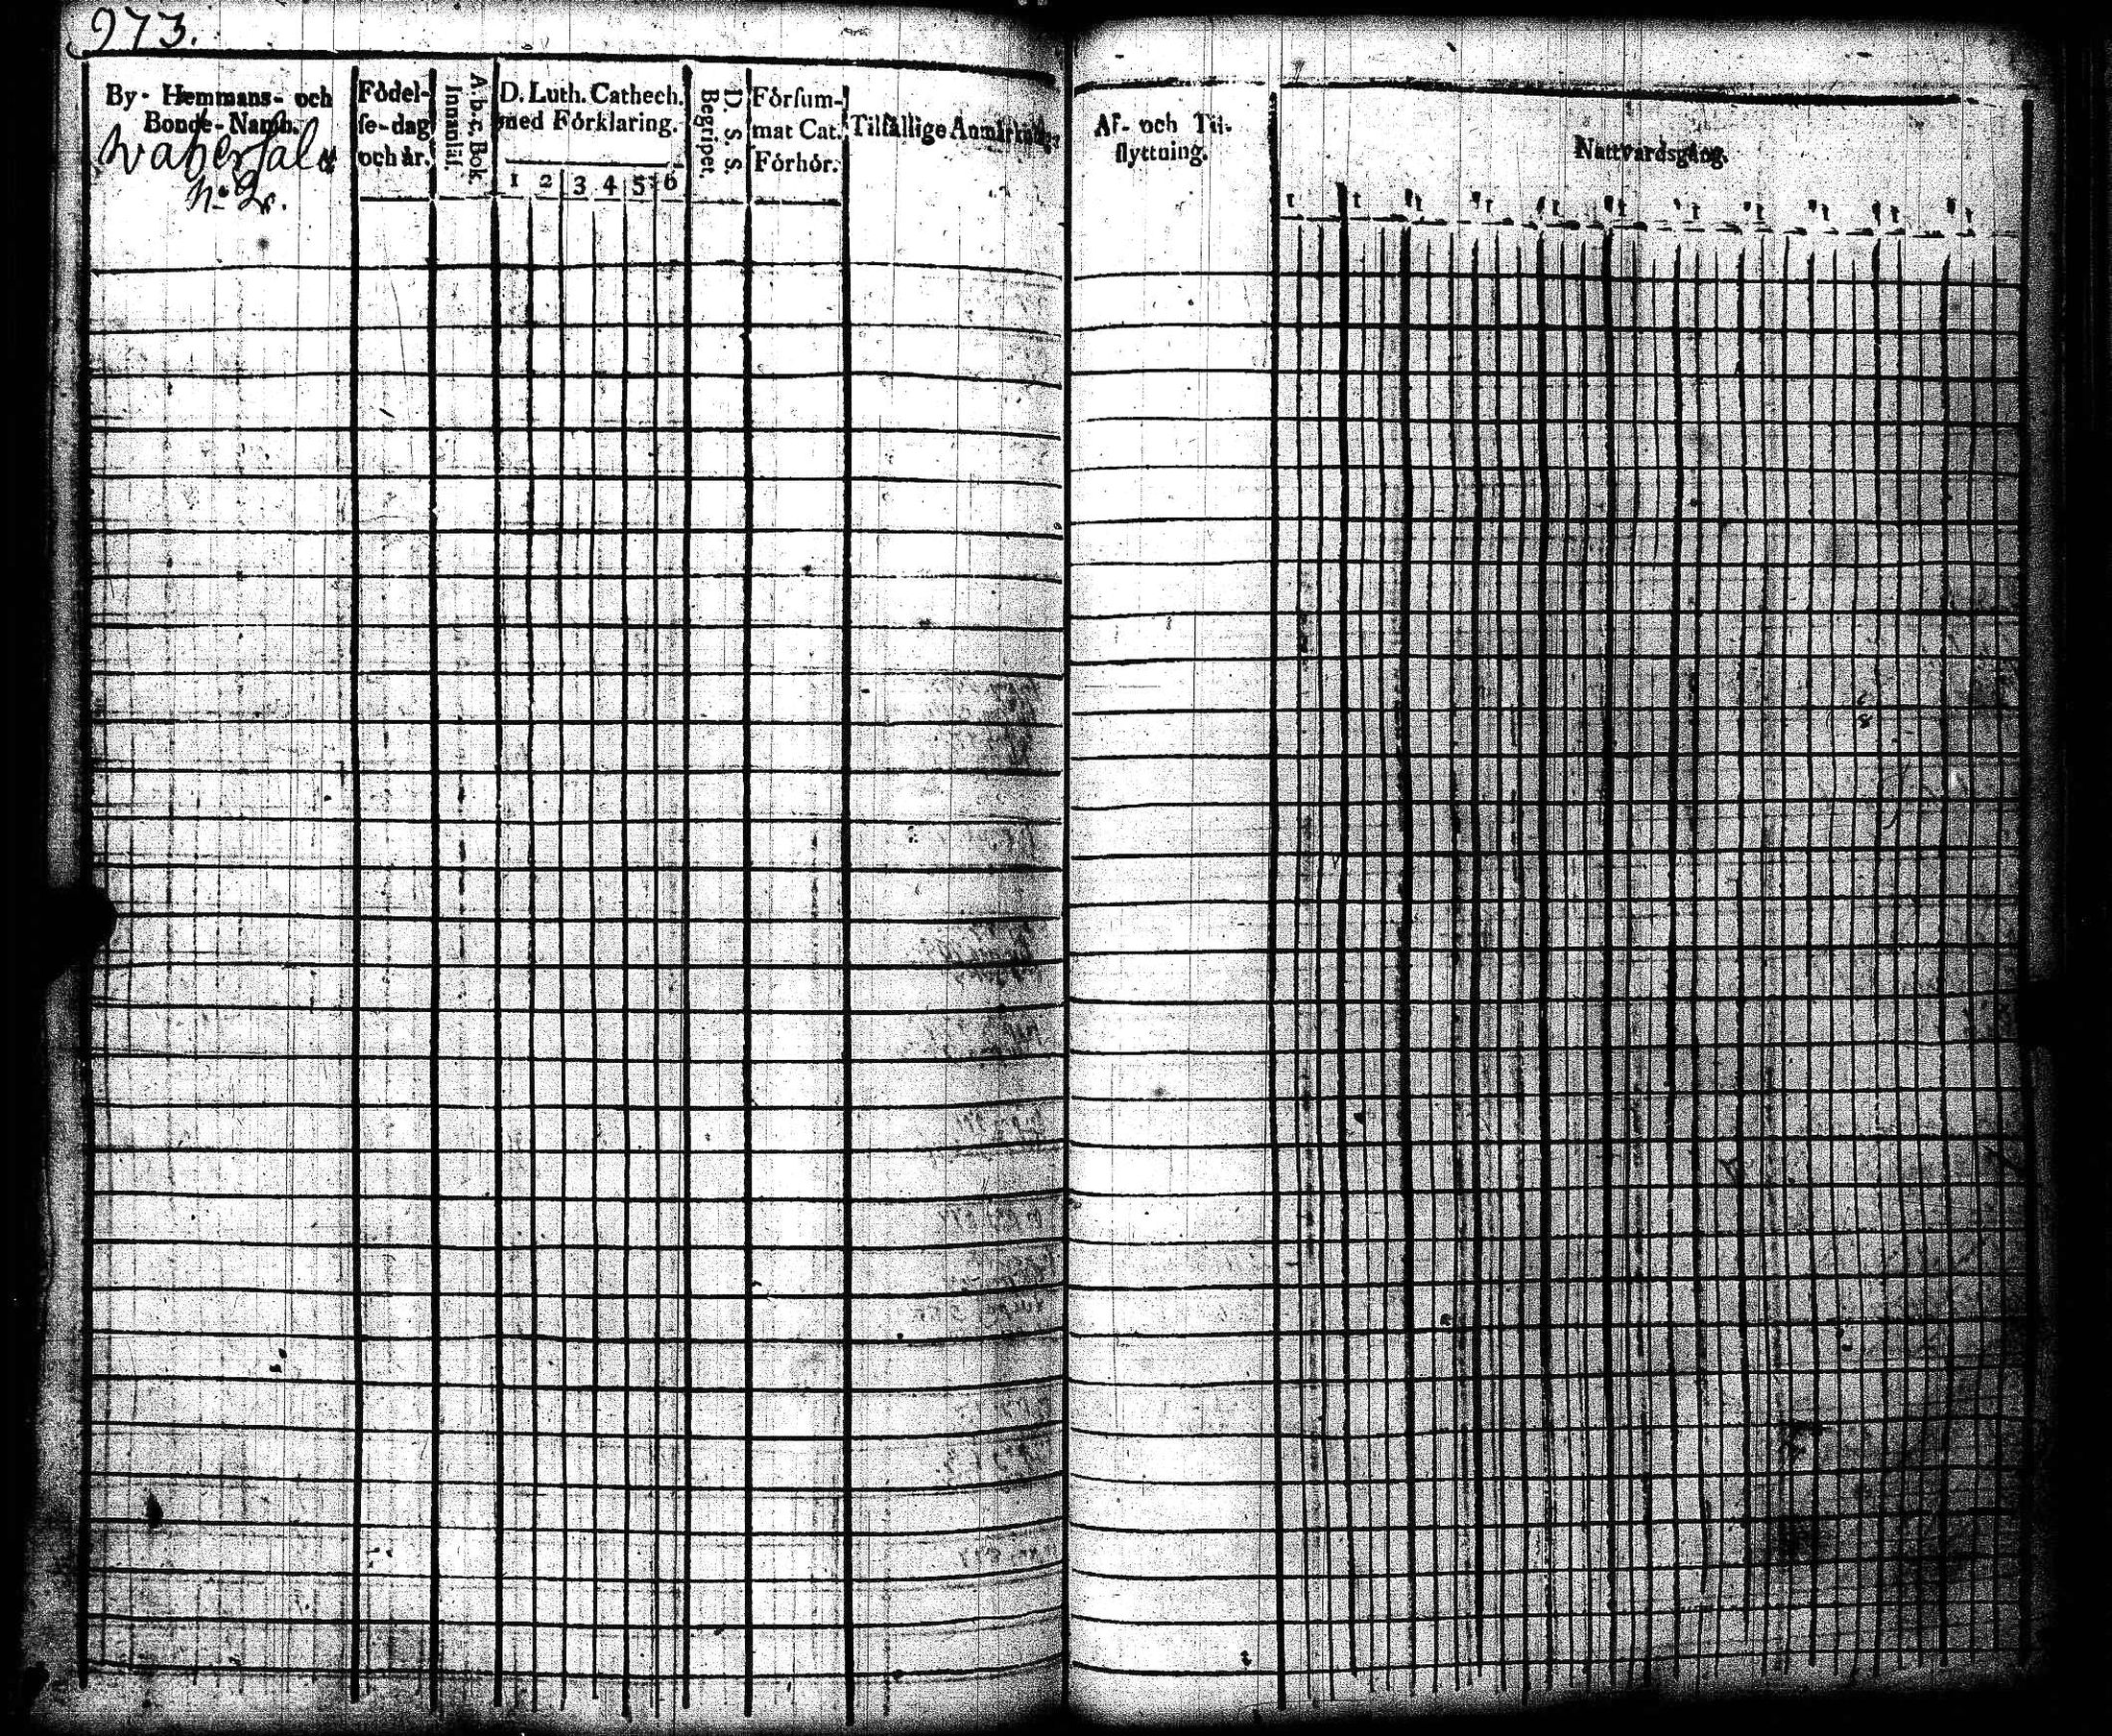 973.
By- Hemmans- och
Bonde-Namn.
No 2.
Födel-
se-dag
och år.
A. b. c. Bok.
Innanläs.
D. Luth. Cathech.
med Förklaring.
1 2 3 4 5 6
D. S. S.
Begripet.
Försum-
mat Cat.
Förhör.
Tilfällige Anmärkningar
Af- och Til-
flyttning.
Nattvardsgång.